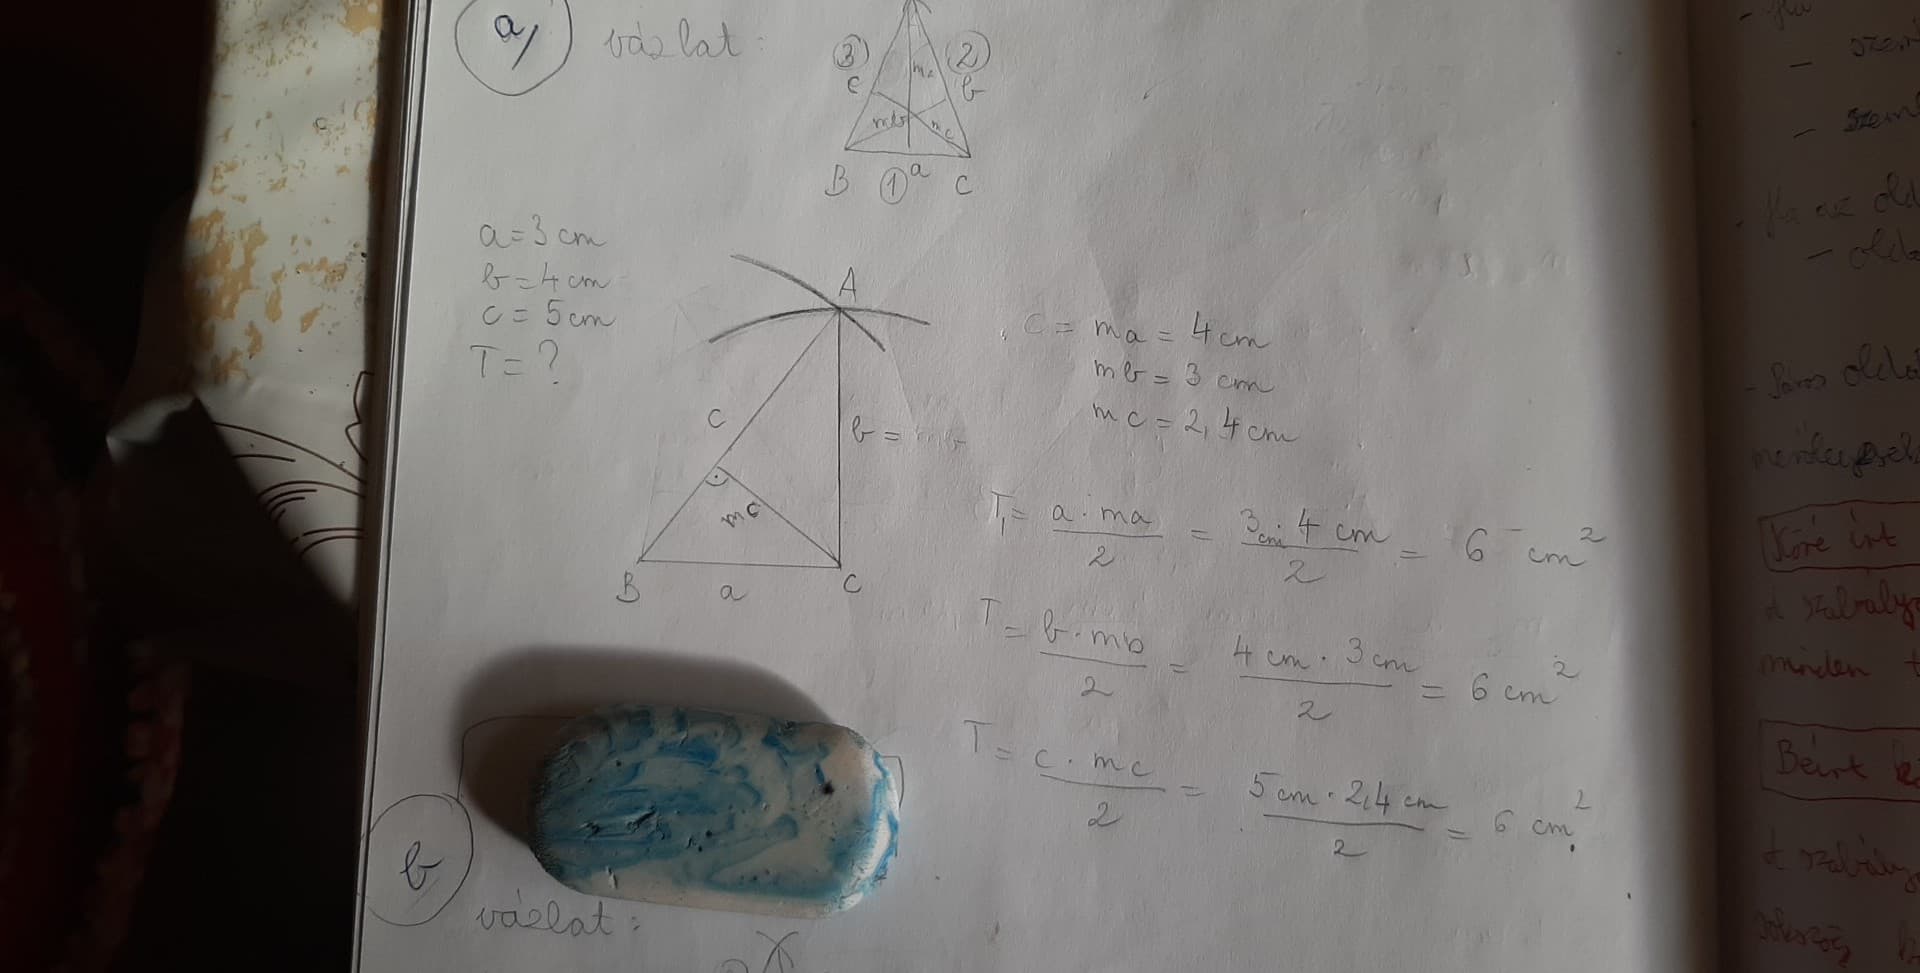 a,
vázlat:
3
2
c
ma
b
mb
mc
B
1
a
C
a=3 cm
b=4 cm
c=5 cm
T=?
A
c
b =
mc
B
a
C
c = ma = 4 cm
mb = 3 cm
mc = 2,4 cm
T₁= a·ma/2 = 3cm·4 cm/2 = 6 cm²
T= b·mb/2 = 4 cm·3 cm/2 = 6 cm²
T= c·mc/2 = 5 cm·2,4 cm/2 = 6 cm².
b
vázlat:
- szem
- Ha az old
- Páros oldal
Köré írt
A szabály
minden t
Beírt k
A szabály
sokszög